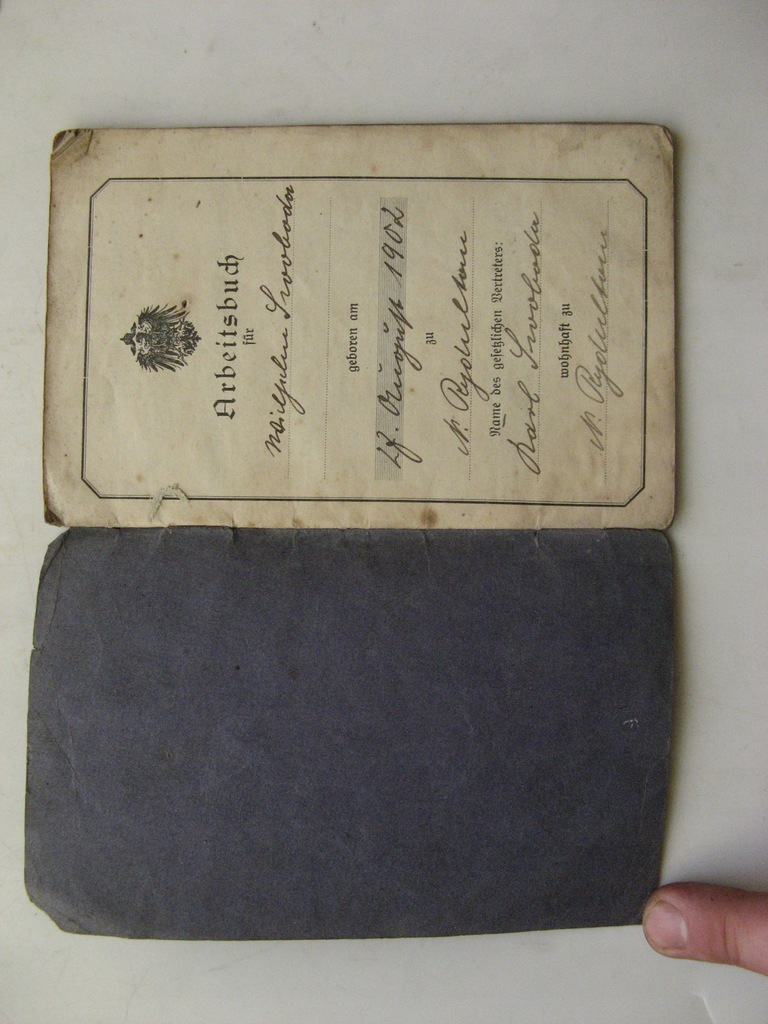 Arbeitsbuch
für
Wilhelm Swoboda
geboren am
27. August 1902
zu
N. Rydultau
Name des gesetzlichen Vertreters:
Karl Swoboda
wohnhaft zu
N. Rydultau